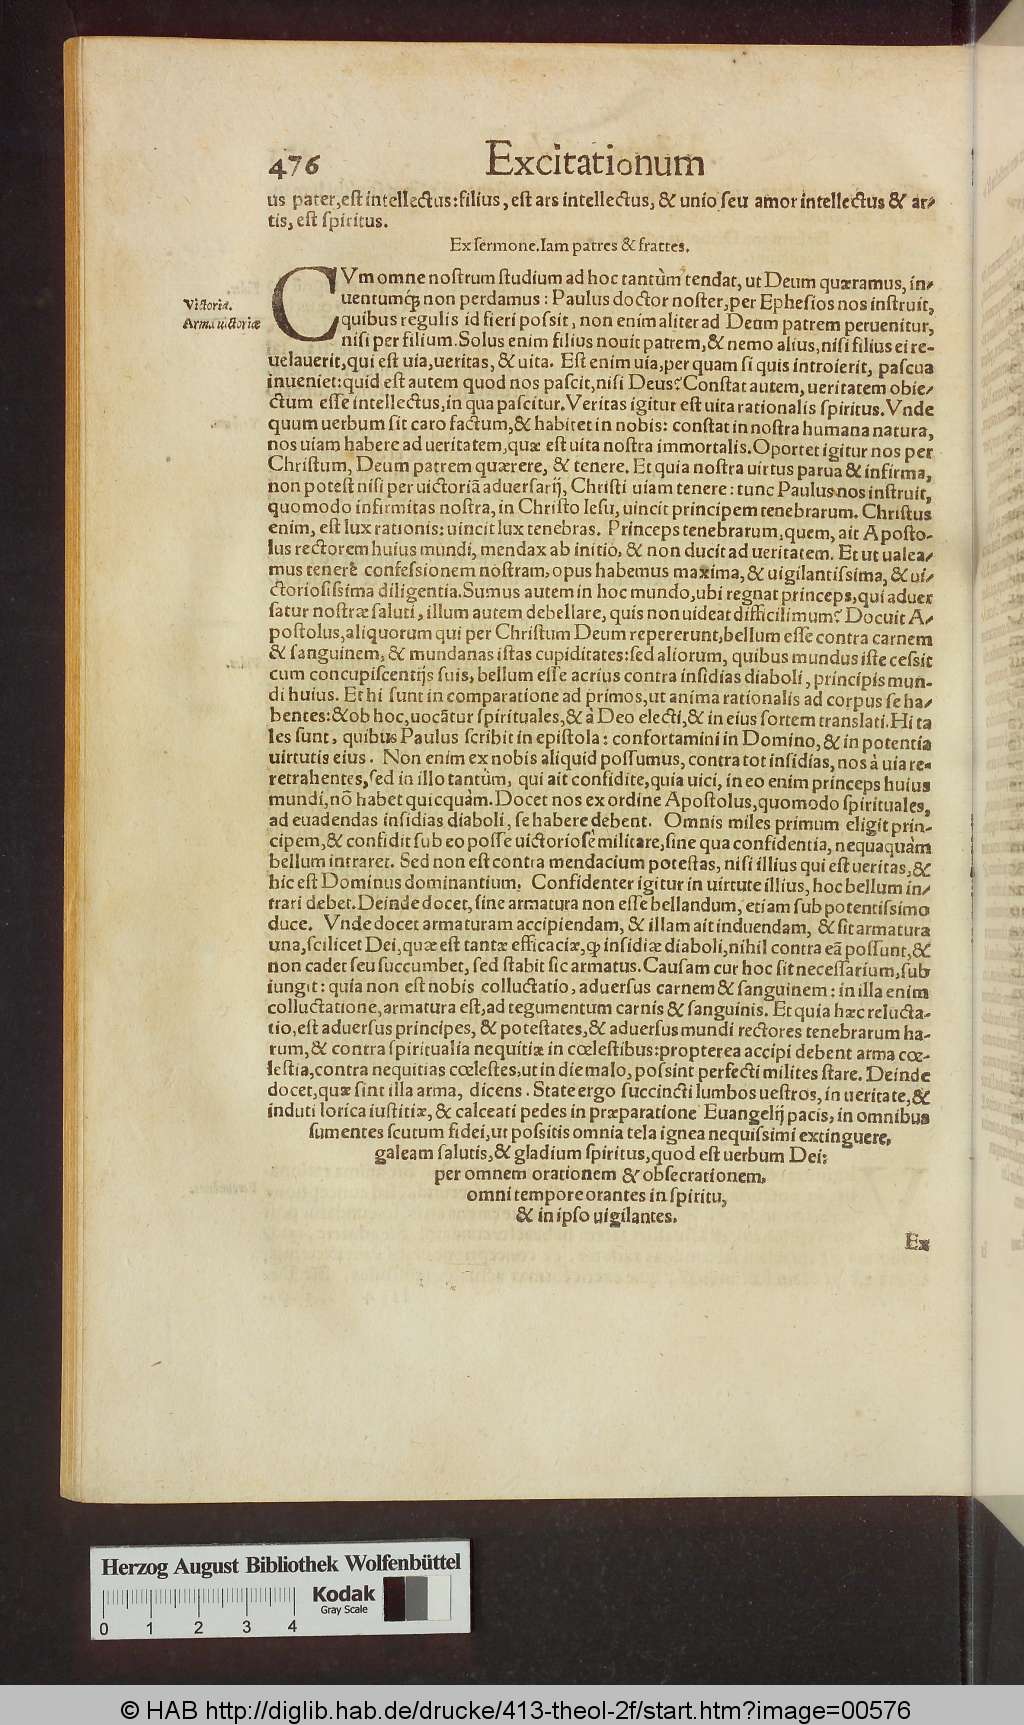 476 Excitationum
us pater, est intellectus: filius, est ars intellectus, & unio seu amor intellectus & ar-
tis, est spiritus.
Ex sermone. Iam patres & fratres.
Victoria.
Arma uictoriæ
CVm omne nostrum studium ad hoc tantùm tendat, ut Deum quæramus, in-
uentumq́; non perdamus: Paulus doctor noster, per Ephesios nos instruit,
quibus regulis id fieri possit, non enim aliter ad Deum patrem peruenitur,
nisi per filium. Solus enim filius nouit patrem, & nemo alius, nisi filius ei re-
uelauerit, qui est uia, ueritas, & uita. Est enim uia, per quam si quis introierit, pascua
inueniet: quid est autem quod nos pascit, nisi Deus? Constat autem, ueritatem obie-
ctum esse intellectus, in qua pascitur. Veritas igitur est uita rationalis spiritus. Vnde
quum uerbum sit caro factum, & habitet in nobis: constat in nostra humana natura,
nos uiam habere ad ueritatem, quæ est uita nostra immortalis. Oportet igitur nos per
Christum, Deum patrem quærere, & tenere. Et quia nostra uirtus parua & infirma,
non potest nisi per uictoriã aduersarij, Christi uiam tenere: tunc Paulus nos instruit,
quomodo infirmitas nostra, in Christo Iesu, uincit principem tenebrarum. Christus
enim, est lux rationis: uincit lux tenebras. Princeps tenebrarum, quem, ait Aposto-
lus rectorem huius mundi, mendax ab initio, & non ducit ad ueritatem. Et ut ualea-
mus tenere confessionem nostram, opus habemus maxima, & uigilantissima, & ui-
ctoriosissima diligentia. Sumus autem in hoc mundo, ubi regnat princeps, qui aduer
satur nostræ saluti, illum autem debellare, quis non uideat difficilimum? Docuit A-
postolus, aliquorum qui per Christum Deum repererunt, bellum esse contra carnem
& sanguinem, & mundanas istas cupiditates: sed aliorum, quibus mundus iste cessit
cum concupiscentijs suis, bellum esse acrius contra insidias diaboli, principis mun-
di huius. Et hi sunt in comparatione ad primos, ut anima rationalis ad corpus se ha-
bentes: & ob hoc, uocãtur spirituales, & à Deo electi, & in eius sortem translati. Hi ta
les sunt, quibus Paulus scribit in epistola: confortamini in Domino, & in potentia
uirtutis eius. Non enim ex nobis aliquid possumus, contra tot insidias, nos à uia re-
retrahentes, sed in illo tantùm, qui ait confidite, quia uici, in eo enim princeps huius
mundi, nõ habet quicquàm. Docet nos ex ordine Apostolus, quomodo spirituales,
ad euadendas insidias diaboli, se habere debent. Omnis miles primum eligit prin-
cipem, & confidit sub eo posse uictoriosè militare, sine qua confidentia, nequaquàm
bellum intraret. Sed non est contra mendacium potestas, nisi illius qui est ueritas, &
hic est Dominus dominantium. Confidenter igitur in uirtute illius, hoc bellum in-
trari debet. Deinde docet, sine armatura non esse bellandum, etiam sub potentissimo
duce. Vnde docet armaturam accipiendam, & illam ait induendam, & sit armatura
una, scilicet Dei, quæ est tantæ efficaciæ, ꝙ insidiæ diaboli, nihil contra eã possunt, &
non cadet seu succumbet, sed stabit sic armatus. Causam cur hoc sit necessarium, sub
iungit: quia non est nobis colluctatio, aduersus carnem & sanguinem: in illa enim
colluctatione, armatura est, ad tegumentum carnis & sanguinis. Et quia hæc relucta-
tio, est aduersus principes, & potestates, & aduersus mundi rectores tenebrarum ha-
rum, & contra spiritualia nequitiæ in cœlestibus: propterea accipi debent arma cœ-
lestia, contra nequitias cœlestes, ut in die malo, possint perfecti milites stare. Deinde
docet, quæ sint illa arma, dicens. State ergo succincti lumbos uestros, in ueritate, &
induti lorica iustitiæ, & calceati pedes in præparatione Euangelij pacis, in omnibus
sumentes scutum fidei, ut possitis omnia tela ignea nequissimi extinguere,
galeam salutis, & gladium spiritus, quod est uerbum Dei:
per omnem orationem & obsecrationem,
omni tempore orantes in spiritu,
& in ipso uigilantes.
Ex
Herzog August Bibliothek Wolfenbüttel
Kodak
Gray Scale
0 1 2 3 4
© HAB http://diglib.hab.de/drucke/413-theol-2f/start.htm?image=00576